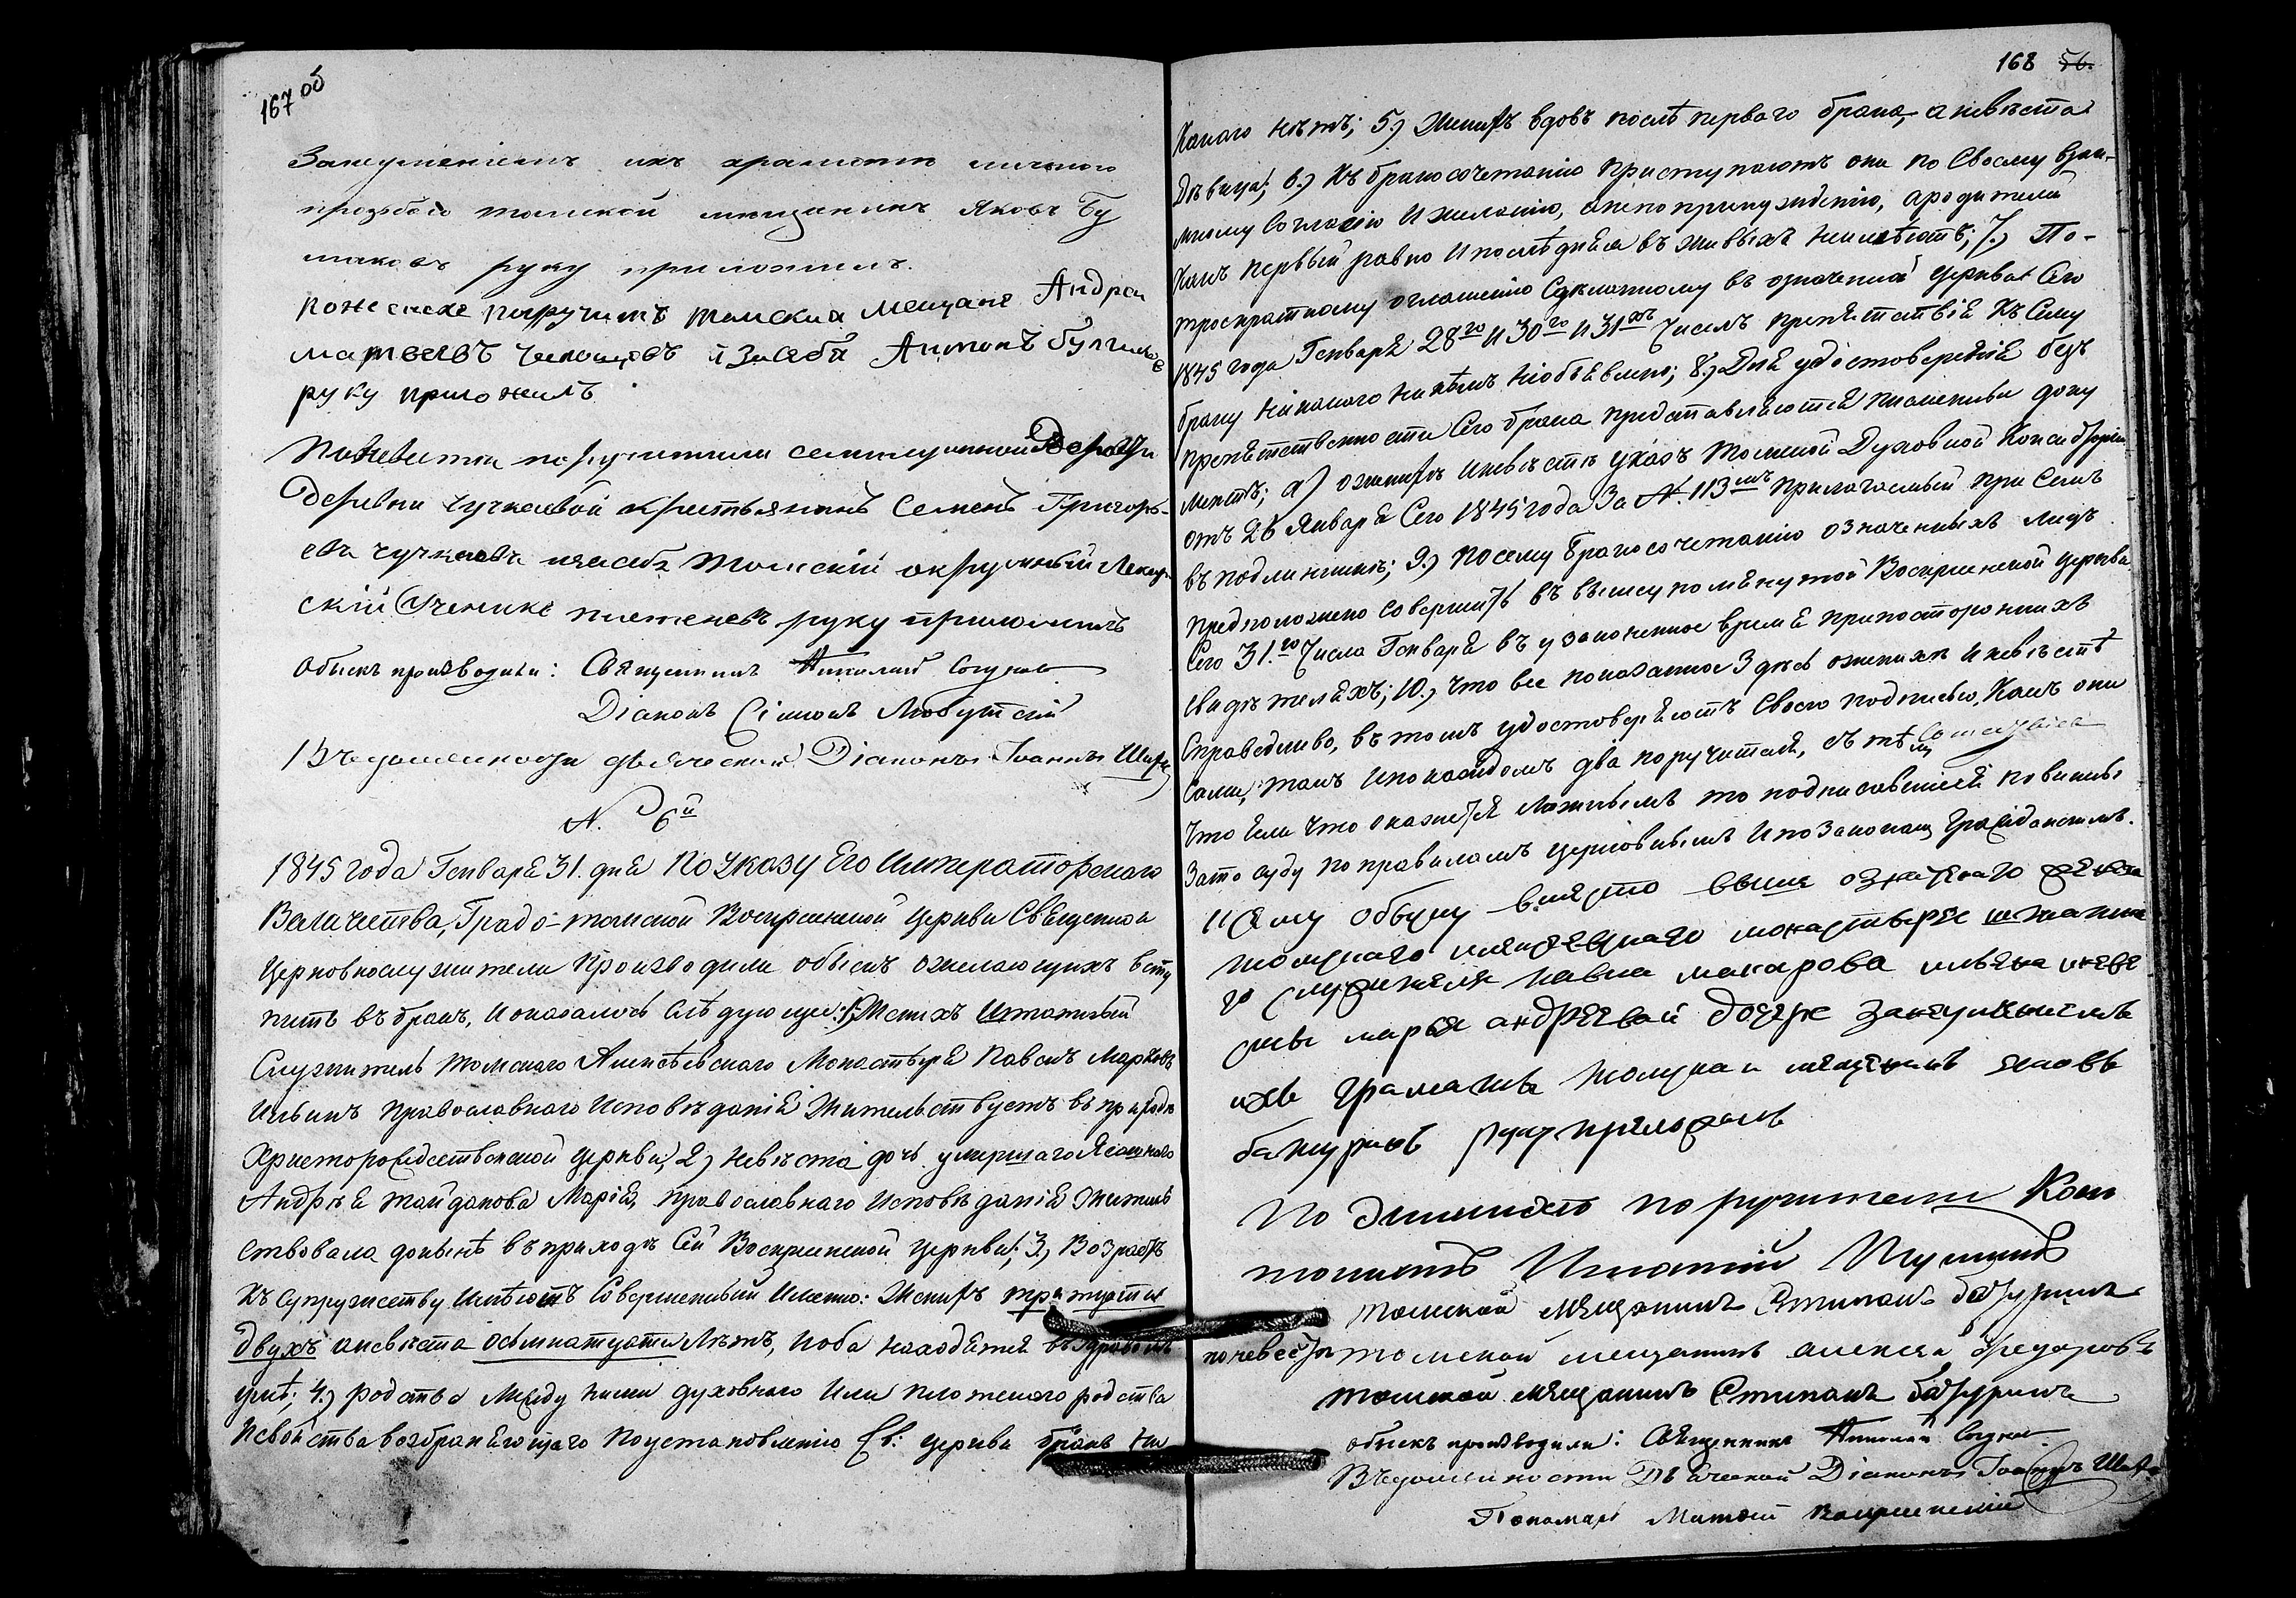 167 об
За неумениемъ ихъ грамоте личною
прозьбою томской мещанинъ Яковъ Бу
маковъ руку приложилъ.
по женихе поручители томския мещане Андреи
матвеевъ и за себя Антонъ
руку приложилъ
По невести поручители
деревни чучкаевой крестьянинъ Семенъ Григорь-
евъ чучкаевъ и за себя Томский окружный Лекар-
ский ученикъ руку приложилъ
Обыскъ производили: Священникъ Николай
Діаконъ Сімеонъ Любутскій
Въ должности дьяческой Діаконъ Іоаннъ
N. 6й
1845 года Генваря 31. дня По Указу Его Императорскаго
Величества, Градо-томской Воскресенской Церкви Священно и
Церковнослужители производили обыскъ о желающихъ всту
пить въ бракъ, и оказалось следующее: 1, Женихъ Штатный
Служитель Томскаго Алексѣевскаго Монастыря Павелъ Марковъ
Ильинъ православнаго Исповѣданія Жительствуетъ въ приходѣ
Христорождественской церкви, 2, Невѣста дочь умершаго Ясашнаго
Андрѣя Тайданова Марія, православнаго Исповѣданія Житель
ствовала донынѣ въ приходѣ Сей Воскресенской Церкви; 3, Возрастъ
къ Супружеству имѣютъ Совершенный Именно: Женихъ тритцати
двухъ а невѣста осьмнатцати Лѣтъ, и оба находятся въ здравомъ
умѣ; 4, родства между ними духовнаго или плотскаго родства
и свойства возбраняющаго по установленію Св: церкви бракъ ни
168 56.
какого нѣтъ; 5, Женихъ вдовъ послѣ перваго брака, а невѣста
Дѣвица; 6, Къ бракосочетанію приступаютъ они по Своему взаи-
мному Согласію и желанію, а не по принужденію, а родителей
какъ первый равно и послѣдняя въ живыхъ не имѣютъ; 7, По-
троекратному оглашенію Сдѣланному въ означенной Церкви Сего
1845 года Генваря 28го и 30го и 31хъ Числъ препятствія къ Сему
браку никакого никѣмъ не объявлено; 8, Для удостовѣренія безъ
препятственности Сего брака представляются письменны доку
ментъ; а) о женихѣ и невѣстѣ указъ Томской Духовной Консисторіи
отъ 26 Января Сего 1845 года за №. 113мъ прилагаемый при Семъ
въ подлинникѣ; 9, По сему бракосочетанію означенныхъ лицъ
предположено Совершить въ вышеупомянутой Воскресенской церкви
Сего 31.го Числа Генваря въ узаконенное время при постороннихъ
свидѣтеляхъ; 10, что все показанное здѣсь о женихѣ и невѣстѣ
Справедливо, въ томъ удостовѣряютъ Своею подписью, Какъ они
Сами, такъ и по каждомъ два поручителя, съ тѣмъ
Что если что окажется ложнымъ то подписавшіеся повинны
За то суду по правиламъ церковнымъ и по Законамъ Гражданскимъ.
К сему обыску вместо выше означенаго
томскаго алексевскаго монастыря штатна
го служителя павла макарова ильина и неве
сты марьи андревой дочере за неумениемъ
ихъ грамоте томскои мещанинъ яковъ
батуринъ руку приложилъ
По женихе поручители
Игнатий
томской мещанинъ Степанъ батуринъ
по невесте томской мещанинъ алексей Федоровъ
томской мещанинъ Степанъ батуринъ
обыскъ производили: Священникъ Николай
Въ должности Дьяческой Діаконъ Іоаннъ
Пономарь Матвей Воскресенскій